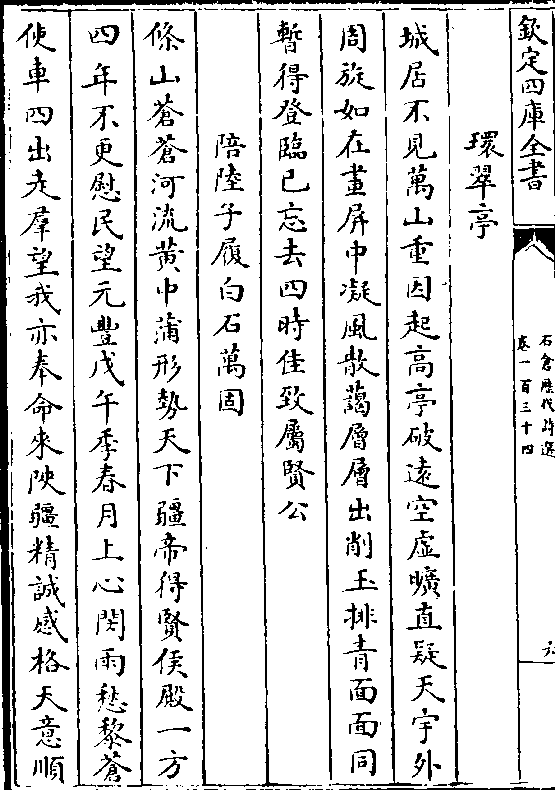 欽定四庫全書
石倉歷代詩選
卷一百三十四
環翠亭
城居不見萬山重因起高亭破遠空虛曠直疑天宇外
周旋如在畫屏中凝風散藹層層出削玉排青面面同
暫得登臨已忘去四時佳致屬賢公
陪陸子履白石萬固
條山蒼蒼河流黄中蒲形勢天下疆帝得賢侯殿一方
四年不更慰民望元豐戊午季春月上心閔雨愁黎蒼
使車四出走羣望我亦奉命來陜疆精誠感格天意順